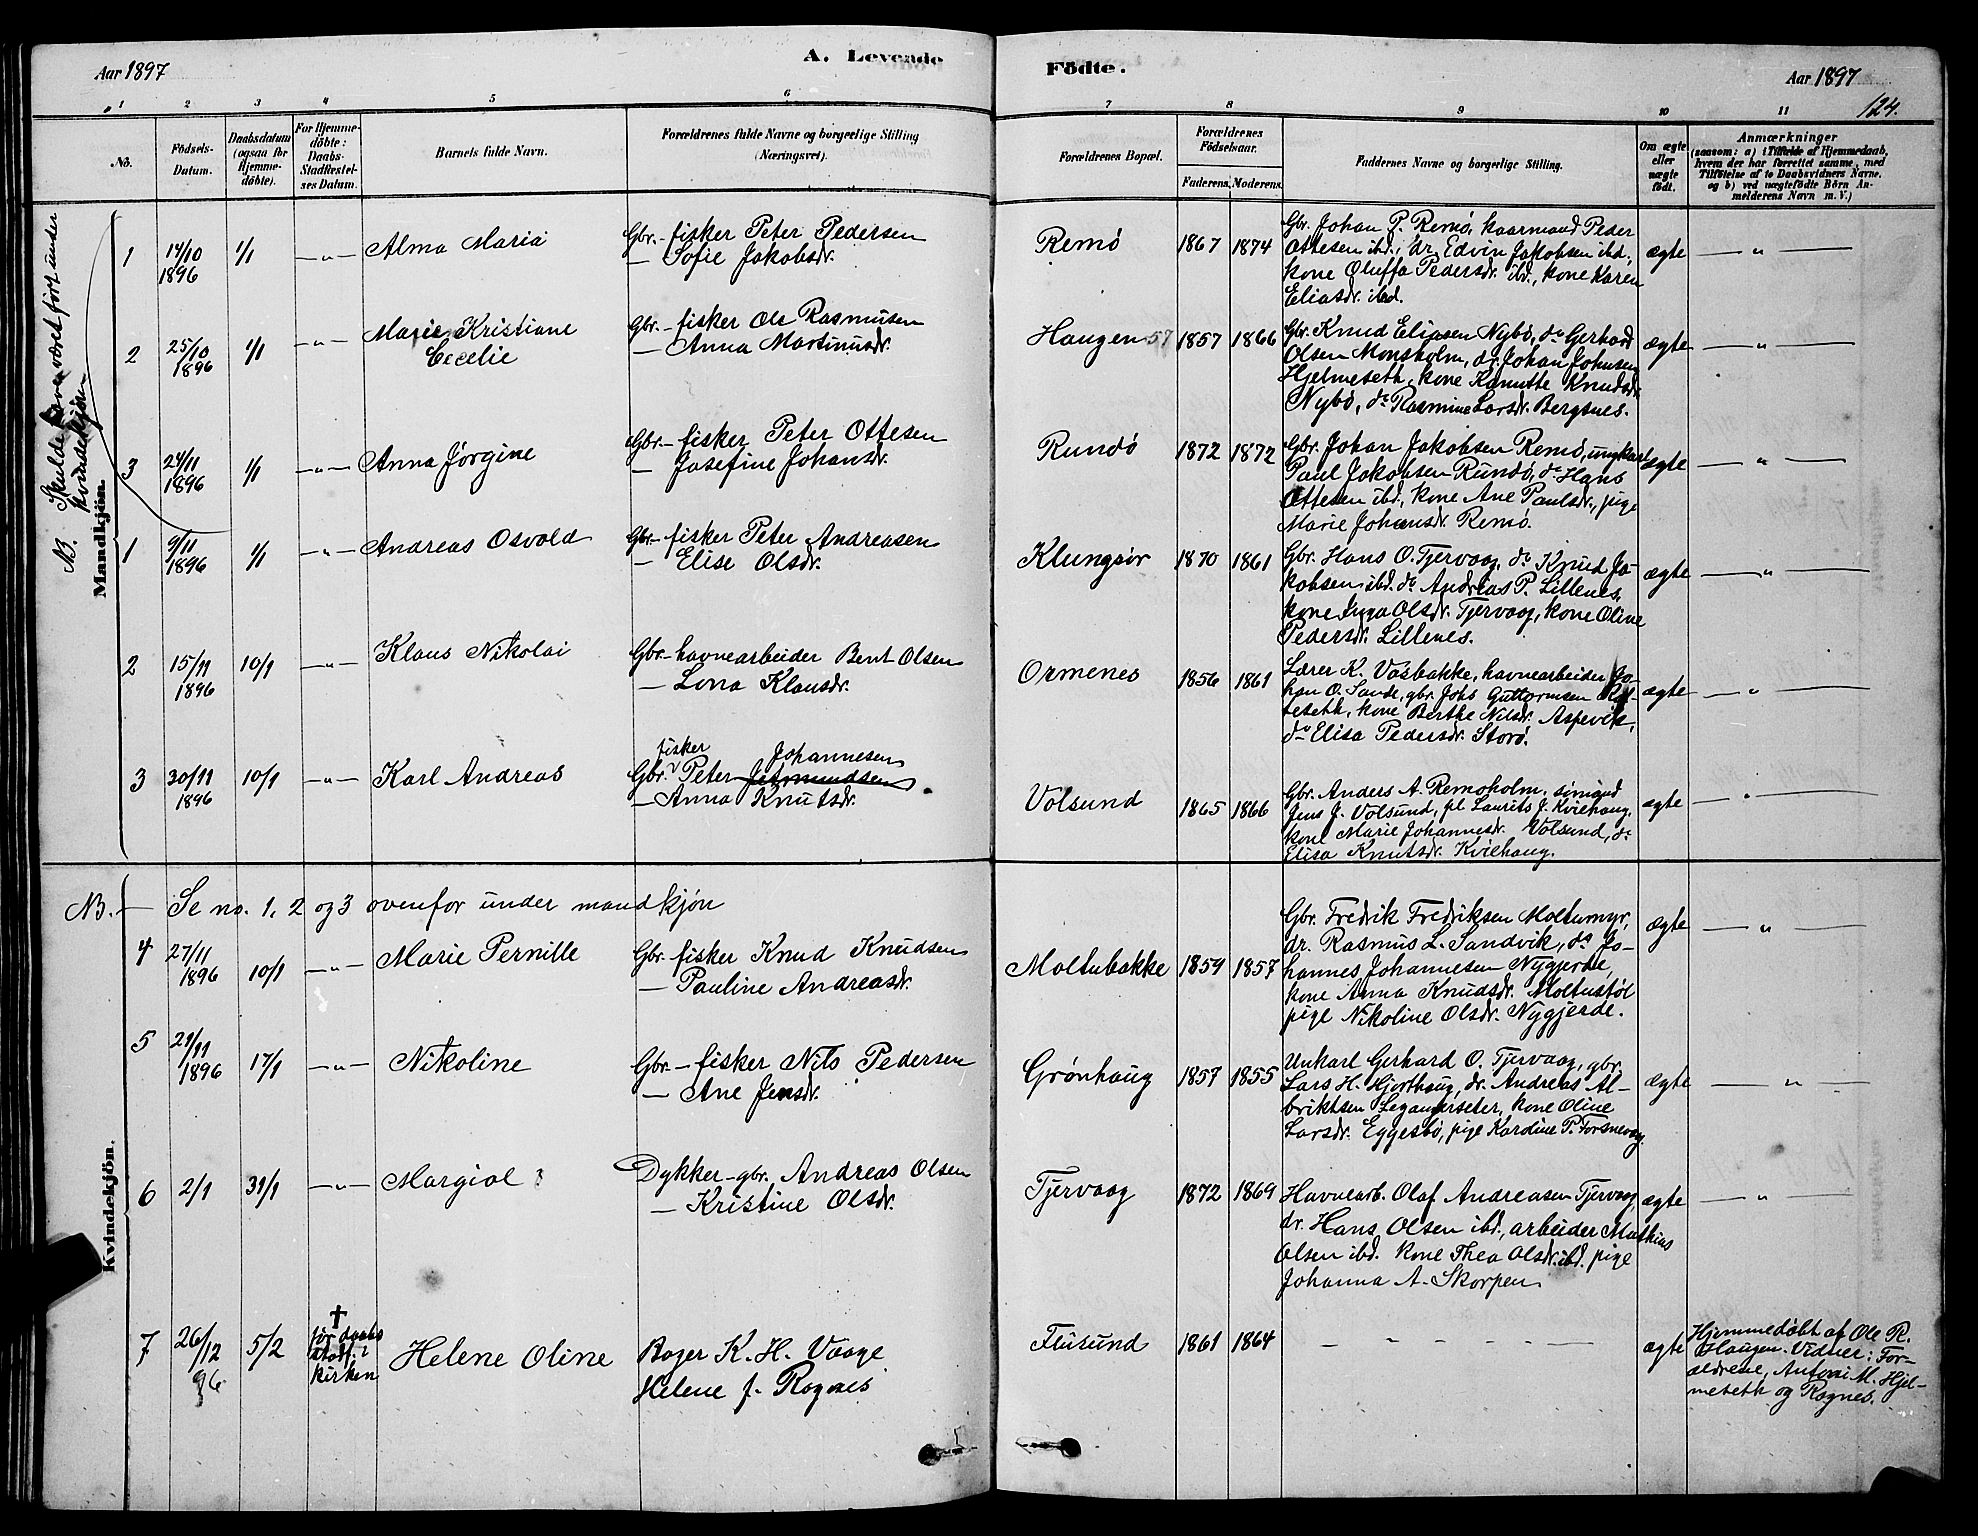 Aar 1897
A. Levende
Födte.
Aar 1897
124.
1 2 3 4 5 6 7 8 9 10 11
No.
Födsels-
Datum.
Daabsdatum
(ogsaa for
Hjemme-
döbte).
For Hjemme-
döbte:
Daabs-
Stadfæstel-
ses Datum.
Barnets fulde Navn.
Forældrenes fulde Navne og borgerlige Stilling
(Næringsvei).
Forældrenes Bopæl.
Forældrenes
Födselsaar.
Faderens. Moderens.
Faddernes Navne og borgerlige Stilling.
Om ægte
eller
uægte
födt.
Anmærkninger
(saasom: a) i Tilfælde af Hjemmedaab,
hvem der har forrettet samme, med
Tilföielse af to Daabsvidners Navne,
og b) ved uægtefödte Börn An-
melderens Navn m. V.)
NB. Skulde have været ført under
kvindekjøn
Mandkjön.
1 14/10 1896 1/1 — „ — Alma Maria
Gbr.- fisker Peter Pedersen
— Sofie Jakobsdr.
Remö 1867 1874
Gbr. Johan P. Remö, kaarmand Peder
Ottesen ibd., dr. Edvin Jakobsen ibd.,
kone Oluffa Pedersdr. ibd., kone Karen
Eliasdr. ibd.
ægte — „ —
2 25/10 1896 1/1 — „ — Marie Kristiane
Cecelie
Gbr.- fisker Ole Rasmusen
— Anna Martinusdr.
Haugen 57 1857 1866
Gbr. Knud Eliasen Nybö, do Gerhard
Olsen Monsholm, dr. Johan Johnsen
Hjelmeseth, kone Kanutte Knudsdr.
Nybö, do Rasmine Larsdr. Bergsnes.
ægte — „ —
3 24/11 1896 1/1 — „ — Anna Jørgine
Gbr.- fisker Peter Ottesen
— Josefine Johansdr.
Rundö 1872 1872
Gbr. Johan Jakobsen Remö, ungkarl
Paul Jakobsen Rundö, do Hans
Ottesen ibd., kone Ane Paulsdr., pige
Marie Johansdr. Remö.
ægte — „ —
1 9/11 1896 1/1 — „ — Andreas Osvald
Gbr.- fisker Peter Andreasen
— Elise Olsdr.
Klungsör 1870 1861
Gbr. Hans O. Tjervaag, do Knud Ja-
kobsen ibd. do Andreas P. Lillenes,
kone Inga Olsdr. Tjervaag, kone Oline
Pedersdr. Lillenes.
ægte — „ —
2 15/11 1896 10/1 — „ — Klaus Nikolai
Gbr.- havnearbeider Bent Olsen
— Lona Klausdr.
Ormenes 1856 1861
Lærer K. Vasbakke, havnearbeider Jo-
han O. Sande, gbr. Johs Guttormsen
seseth, kone Berthe Nilsdr. Aspevik,
do Elisa Pedersdr. Storö.
ægte — „ —
3 30/11 1896 10/1 — „ — Karl Andreas
fisker Johannesen
Gbr. Peter
— Anna Knutsdr.
Volsund 1865 1866
Gbr. Anders A. Remöholm, sömand
Jens J. Volsund, pl. Laurits J. Kviehaug,
kone Marie Johannesdr. Volsund, do
Elisa Knutsdr. Kviehaug.
ægte — „ —
NB. — Se no. 1, 2 og 3 ovenfor under mandkjön
Kvindekjön.
4 27/11 1896 10/1 — „ — Marie Pernille
Gbr. fisker Knud Knudsen
— Pauline Andreasdr.
Moltubakke 1859 1857
Gbr. Fredrik Fredriksen Moltumyr,
dr. Rasmus L. Sandvik, do Jo-
hannes Johannesen Nygjerde,
kone Anna Knudsdr. Moltustöl
pige Nikoline Olsdr. Nygjerde.
ægte — „ —
5 21/11 1896 17/1 — „ — Nikoline
Gbr.- fisker Nils Pedersen
— Ane Jensdr.
Grönhaug 1857 1855
Unkarl Gerhard O. Tjervaag, gbr.
Lars H. Hjorthaug, dr. Andreas Al-
briktsen Leganerseter, kone Oline
Larsdr. Eggesbö, pige Kardine P. Torsnevag
ægte — „ —
6 2/1 31/1 — „ — Margiol
Dykker-gbr. Andreas Olsen
— Kristine Olsdr.
Tjervaag 1872 1869
Havnearb. Olaf Andreasen Tjervaag,
dr. Hans Olsen ibd., arbeider Mathias
Olsen ibd. kone Thea Olsdr. ibd. pige
Johanna A. Skorpen
ægte — „ —
7 26/12 96 5/2 † før daabs
stadf. i
kirken
Helene Oline
Bager K. H. Vaage
Helene f. Rognes
Flusund 1861 1864
ægte
Hjemmedøbt af Ole R.
Haugen. Vidner: For-
ældrene, Antoni M. Hjel-
meseth og Rognes.